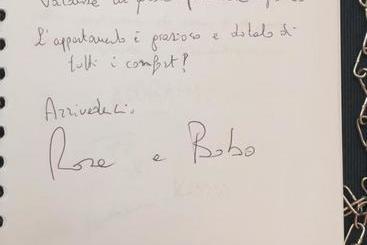 L'appartamento è grazioso e dotato di
tutti i comfort!
Arrivederci.
Rosa e Bobo